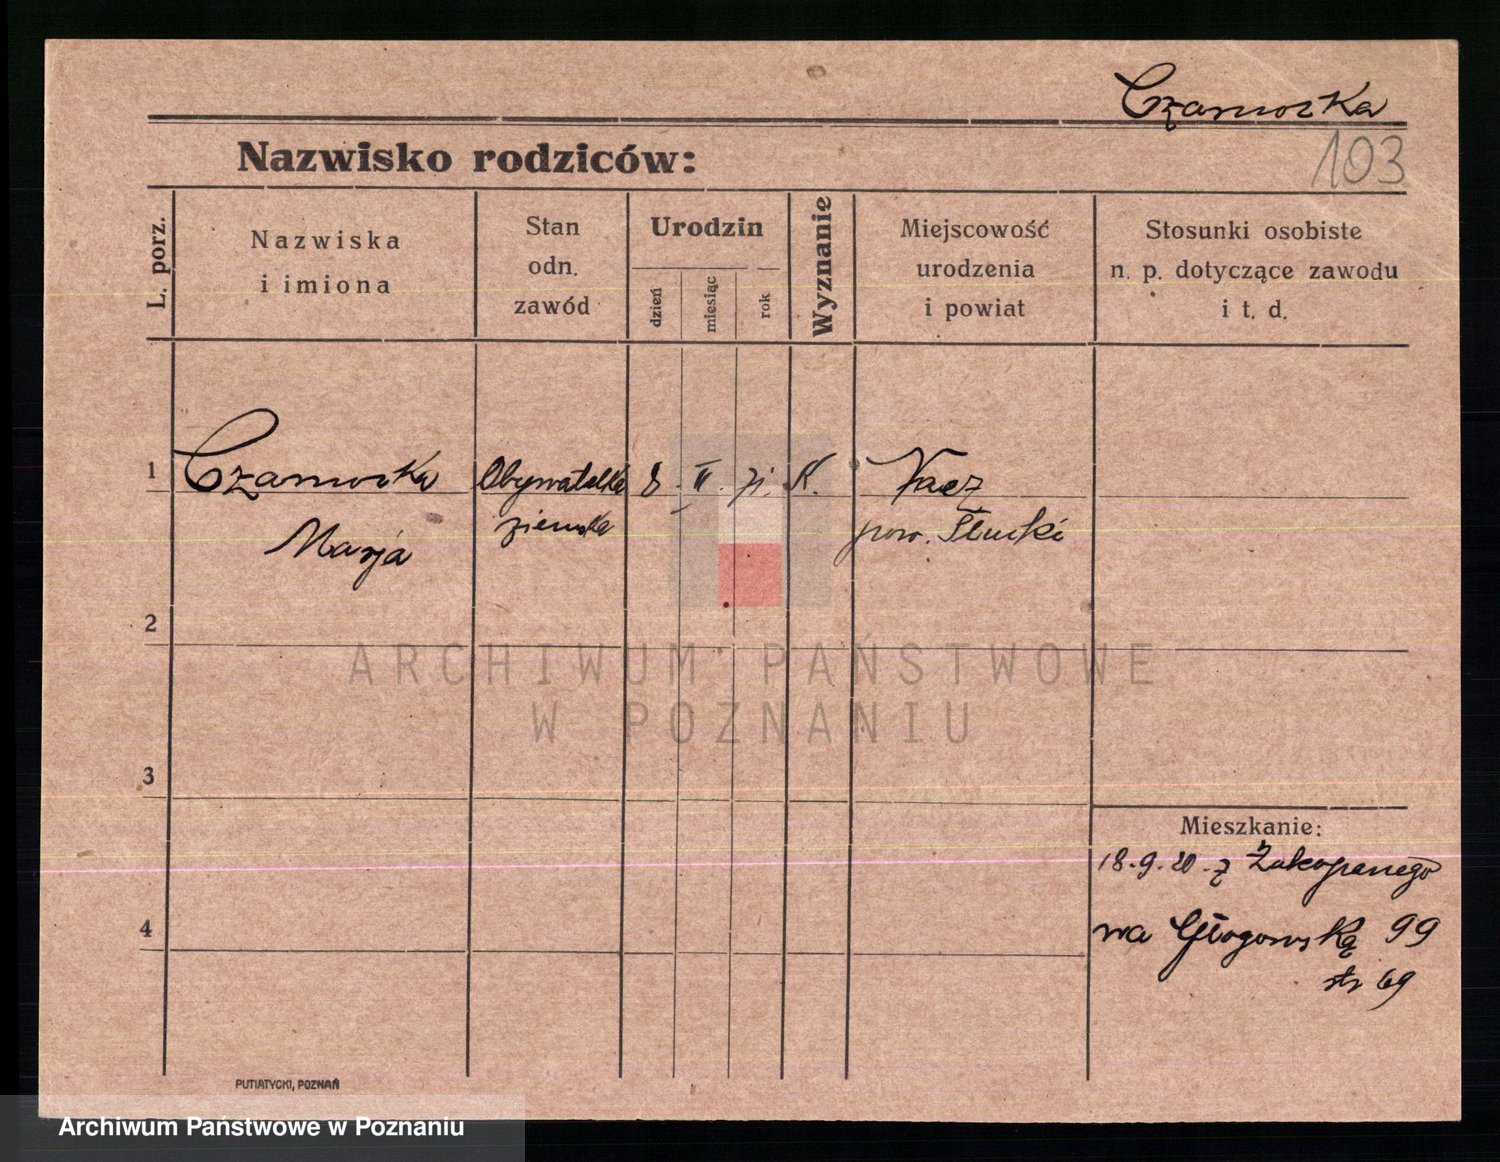 Czarnocka
103
Nazwisko rodziców:
L. porz.
Nazwiska
i imiona
Stan
odn.
zawód
Urodzin
dzień
miesiąc
rok
Wyznanie
Miejscowość
urodzenia
i powiat
Stosunki osobiste
n. p. dotyczące zawodu
i t. d.
1 Czarnocka Obywatelka 8. II. 71. K.
Marja ziemska pow. Słucki
2
ARCHIWUM PAŃSTWOWE
W POZNANIU
3
Mieszkanie:
18.9.20. z Zakopanego
4
na Głogowską 99
str 69
PUTIATYCKI, POZNAŃ
Archiwum Państwowe w Poznaniu